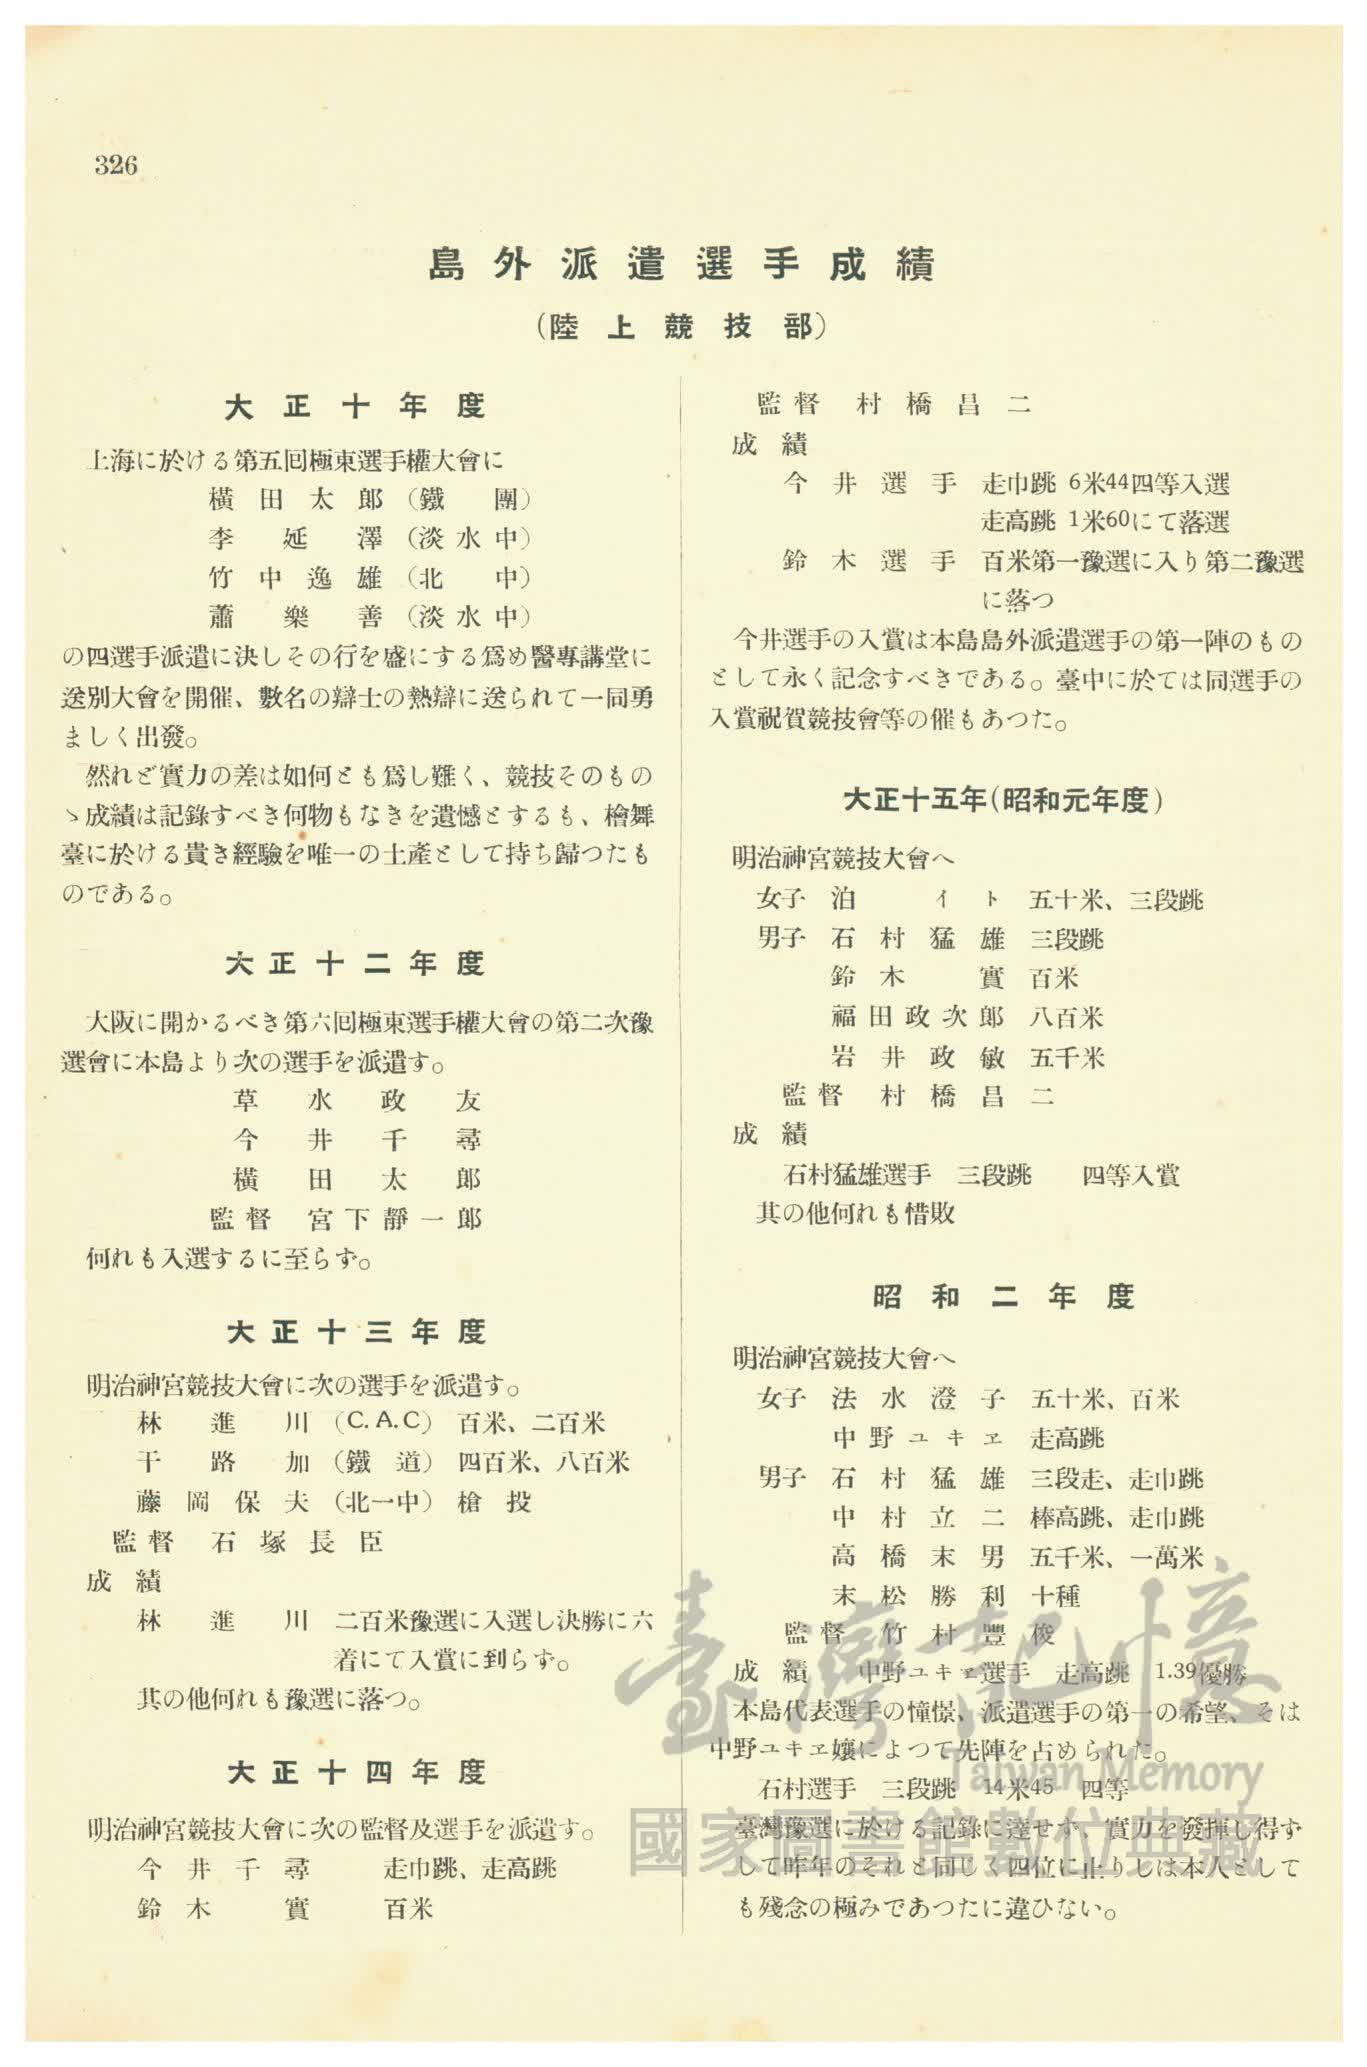 326
島外派遣選手成績
(陸上競技部)
大正十年度
上海に於ける第五囘極東選手權大會に
橫田太郎(鐵團)
李延澤(淡水中)
竹中逸雄(北中)
蕭樂善(淡水中)
の四選手派遣に決しその行を盛にする爲め醫專講堂に
送別大會を開催、數名の辯士の熱辯に送られて一同勇
ましく出發。
然れど實力の差は如何とも爲し難く、競技そのもの
ゝ成績は記錄すべき何物もなきを遺憾とするも、檜舞
臺に於ける貴き經驗を唯一の土產として持ち歸つたも
のである。
大正十二年度
大阪に開かるべき第六囘極東選手權大會の第二次豫
選會に本島より次の選手を派遣す。
草水政友
今井千尋
橫田太郎
監督 宮下靜一郎
何れも入選するに至らず。
大正十三年度
明治神宮競技大會に次の選手を派遣す。
林進川(C.A.C) 百米、二百米
干路加(鐵道) 四百米、八百米
藤岡保夫(北一中) 槍投
監督 石塚長臣
成績
林進川 二百米豫選に入選し決勝に六
着にて入賞に到らず。
其の他何れも豫選に落つ。
大正十四年度
明治神宮競技大會に次の監督及選手を派遣す。
今井千尋 走巾跳、走高跳
鈴木實 百米
監督 村橋昌二
成績
今井選手 走巾跳 6米44四等入選
走高跳 1米60にて落選
鈴木選手 百米第一豫選に入り第二豫選
に落つ
今井選手の入賞は本島島外派遣選手の第一陣のもの
として永く記念すべきである。臺中に於ては同選手の
入賞祝賀競技會等の催もあつた。
大正十五年(昭和元年度)
明治神宮競技大會へ
女子 泊イト 五十米、三段跳
男子 石村猛雄 三段跳
鈴木實 百米
福田政次郎 八百米
岩井政敏 五千米
監督 村橋昌二
成績
石村猛雄選手 三段跳 四等入賞
其の他何れも惜敗
昭和二年度
明治神宮競技大會へ
女子 法水澄子 五十米、百米
中野ユキヱ 走高跳
男子 石村猛雄 三段走、走巾跳
中村立二 棒高跳、走巾跳
高橋末男 五千米、一萬米
末松勝利 十種
監督 竹村豐俊
成績 中野ユキヱ選手 走高跳 1.39優勝
本島代表選手の憧憬、派遣選手の第一の希望、そは
中野ユキヱ孃によつて先陣を占められた。
石村選手 三段跳 14米45 四等
臺灣豫選に於ける記錄に達せず、實力を發揮し得ず
して昨年のそれと同じく四位に止りしは本人として
も殘念の極みであつたに違ひない。
臺灣記憶
Taiwan Memory
國家圖書館數位典藏